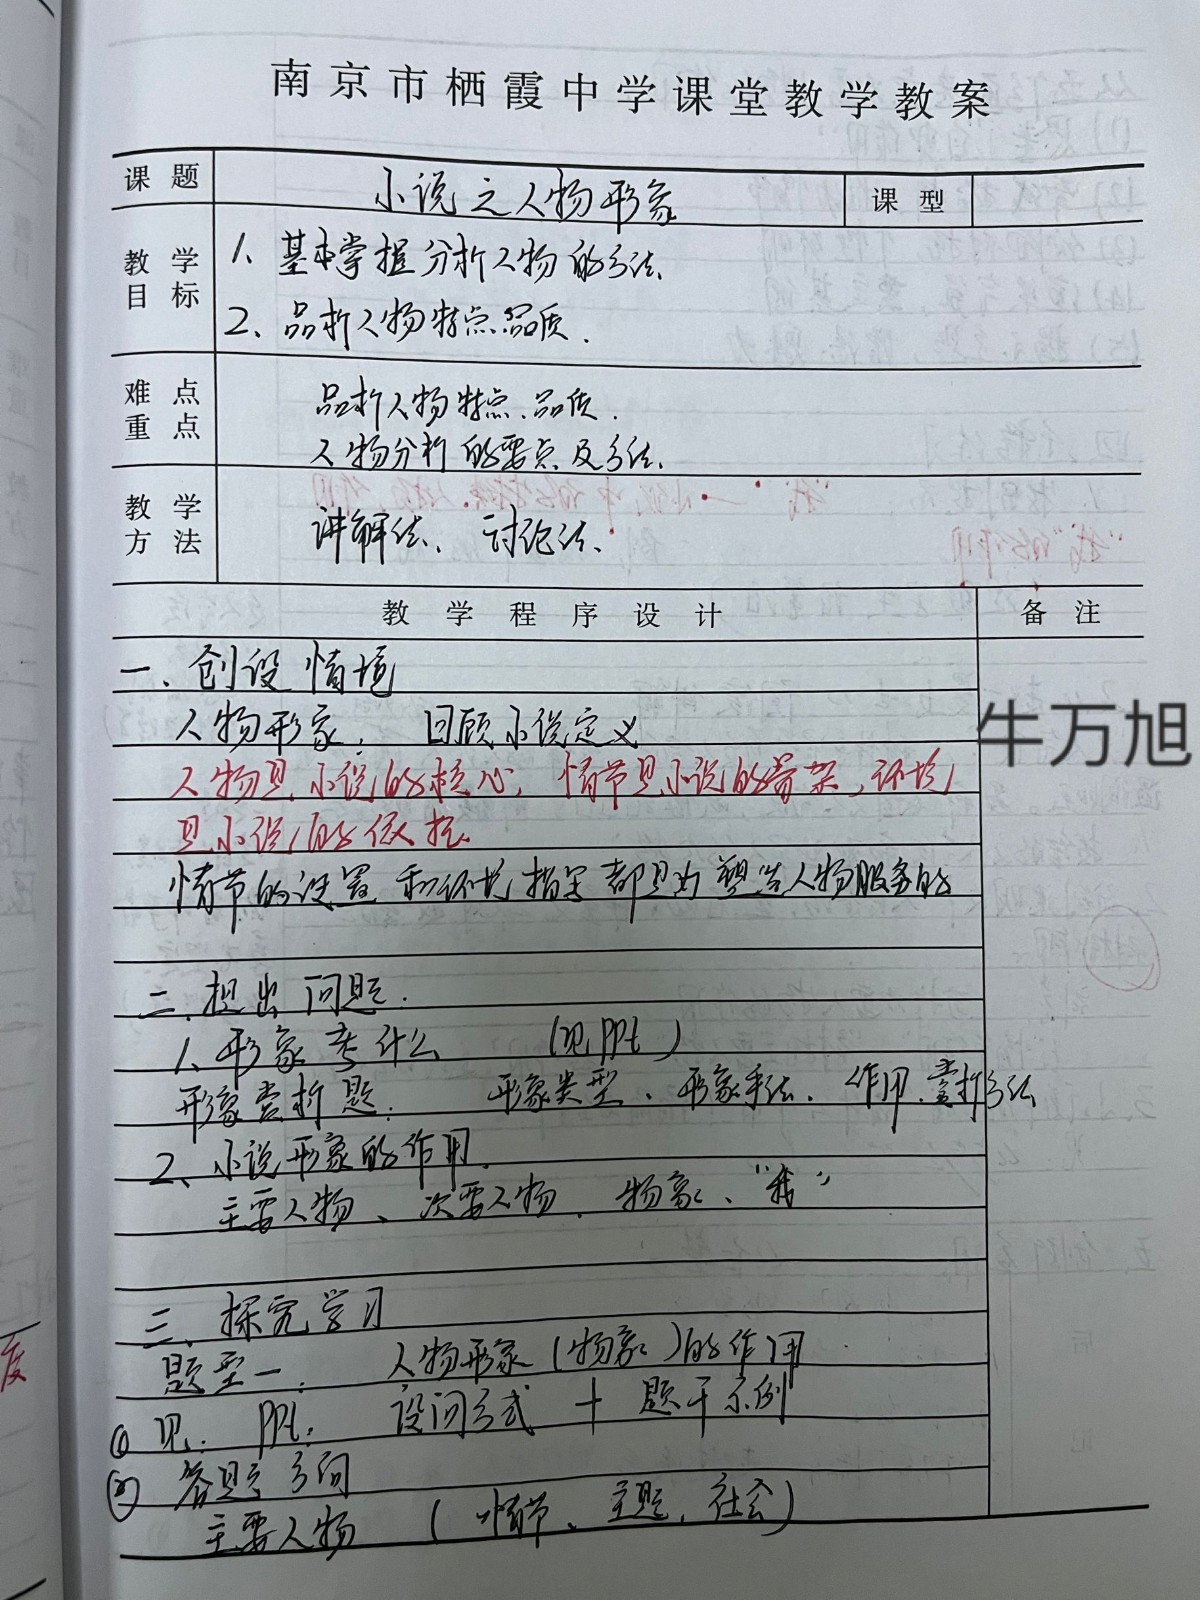 南京市栖霞中学课堂教学教案
课题 小说之人物形象 课型
教学目标 1、基本掌握分析人物的方法
2、品析人物特点品质.
难点重点 品析人物特点、品质.
人物分析的要点及方法.
教学方法 讲解法、讨论法、
教学程序设计 备注
一、创设情境
人物形象, 回顾小说定义
牛万旭
人物是小说的核心, 情节是小说的骨架,环境
是小说的依托
情节的设置和环境描写都是为塑造人物服务的
二、提出问题.
1、形象考什么 (见PPt)
形象赏析题: 形象类型、形象手法、作用.赏析方法
2、小说形象的作用.
主要人物、次要人物、物象、"我"
三、探究学习
题型一: 人物形象(物象)的作用
① 见: PPt: 设问方式 + 题干示例
② 答题方向
主要人物 (情节、主题、社会)
度